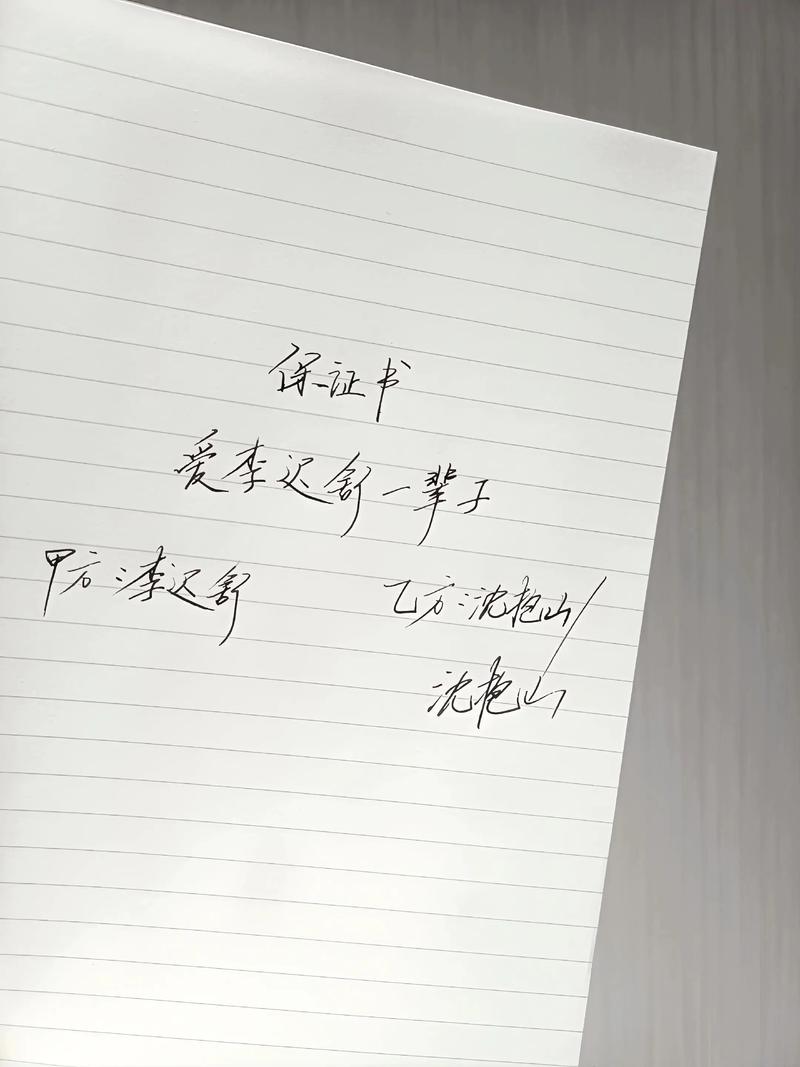 保证书
爱李迟舒一辈子
甲方:李迟舒 乙方:沈抱山/
沈抱山